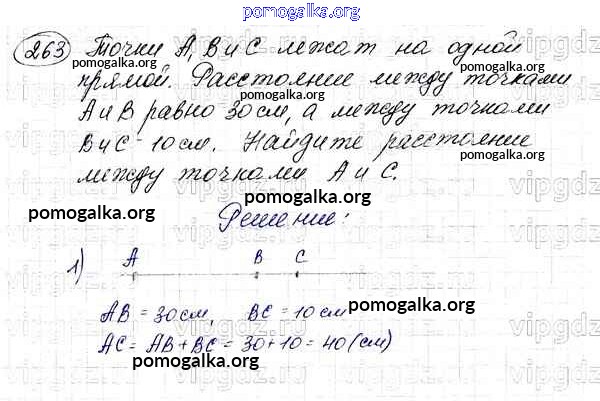 pomogalka.org
263 Точки A, B и C лежат на одной
pomogalka.org pomogalka.org
прямой. Расстояние между точками
A и B равно 30 см, а между точками
B и C - 10 см. Найдите расстояние
pomogalka.org
между точками A и C.
pomogalka.org
Решение:
1) A B C
AB = 30 см, BC = 10 см
pomogalka.org
AC = AB + BC = 30 + 10 = 40 (см)